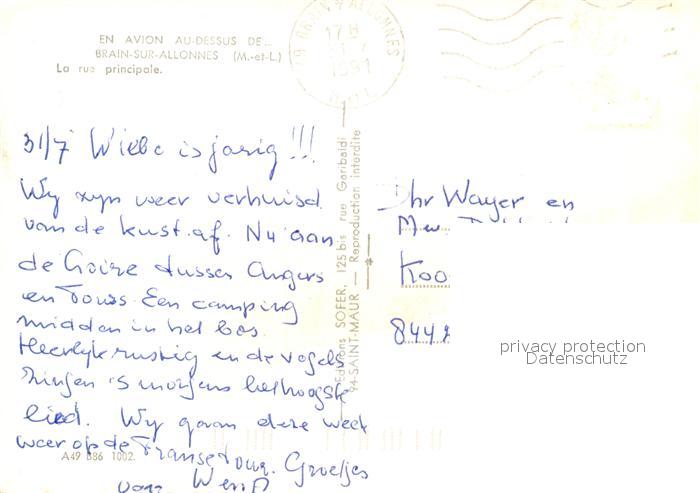 EN AVION AU-DESSUS DE...
BRAIN-SUR-ALLONNES (M.-et-L.)
La rue principale.
BRAIN S ALLONNES
17 H
1991
31/7 Wiebe is jarig !!!
Wy zyn weer verhuisd
van de kust af. Nu aan
de Loire tussen Angers
en Tours. Een camping
midden in het bos.
Heerlyk rustig en de vogels
zingen 's morgens het hoogste
lied. Wy gaan deze week
weer op de Franse tour. Groetjes
van
A49 B86 1002
Editions SOFER, 125 bis rue Garibaldi
94-SAINT-MAUR — Reproduction interdite
Dhr Wayer en
Mw.
Koo
844
privacy protection
Datenschutz